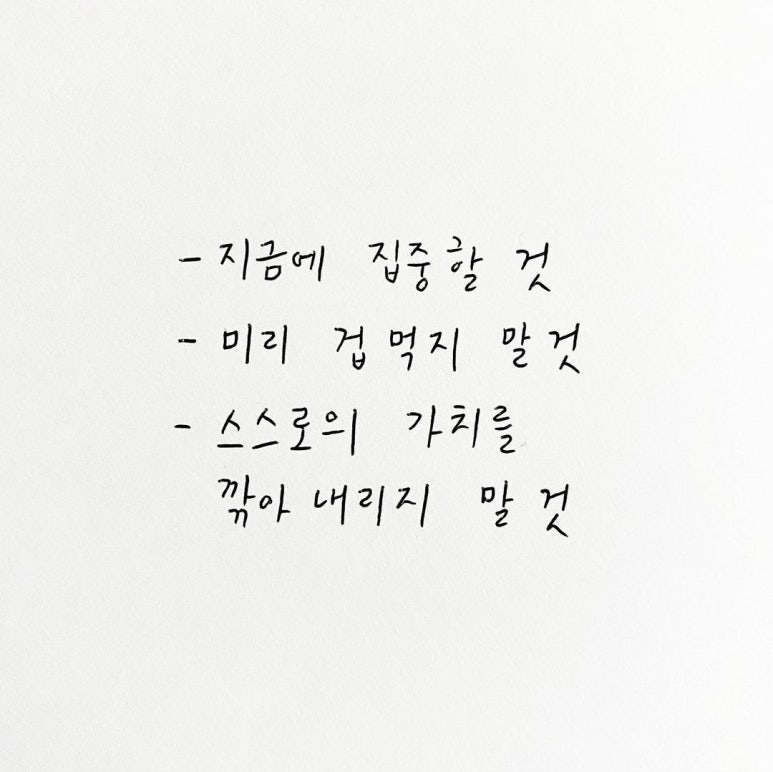 - 지금에 집중할 것
- 미리 겁먹지 말것
- 스스로의 가치를
깎아 내리지 말 것